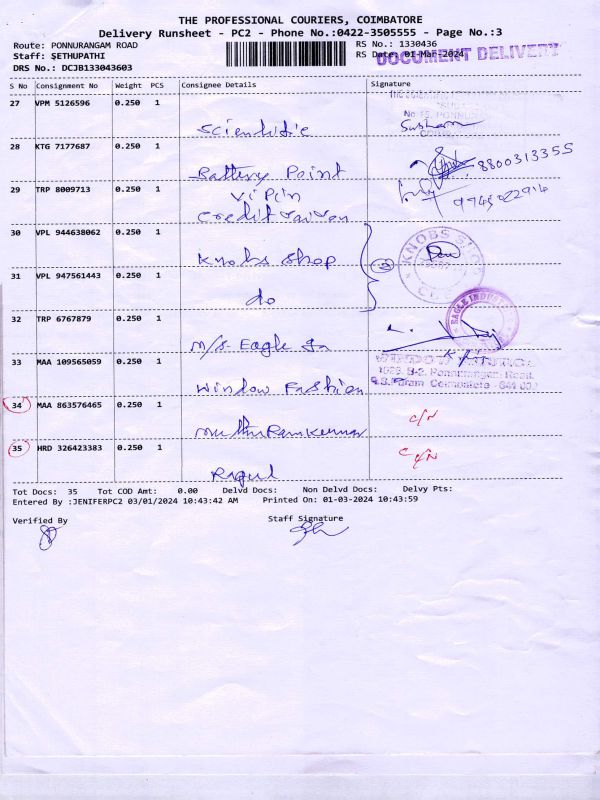 THE PROFESSIONAL COURIERS, COIMBATORE
Delivery Runsheet - PC2 - Phone No.:0422-3505555 - Page No.:3
Route: PONNURANGAM ROAD RS No.: 1330436
Staff: SETHUPATHI RS Date: 01-Mar-2024
DOCUMENT DELIVERY
DRS No.: DCJB133043603
S No Consignment No Weight PCS Consignee Details Signature
27 VPM 5126596 0.250 1
Scientific Susham
28 KTG 7177687 0.250 1
Battery Point 8800313355
29 TRP 8009713 0.250 1
Vipin
Credit 9745022914
30 VPL 944638062 0.250 1
Knobs Shop 2 KNOBS SHOP
31 VPL 947561443 0.250 1
do
32 TRP 6767879 0.250 1
M/s Eagle In EAGLE INDU
33 MAA 109565059 0.250 1
Window Fashion
1023, Ponnurangam Road,
R.S.Puram Coimbatore - 641 002
34 MAA 863576465 0.250 1
Muthu Ramkumar C/N
35 HRD 326423383 0.250 1
Ragul C/N
Tot Docs: 35 Tot COD Amt: 0.00 Delvd Docs: Non Delvd Docs: Delvy Pts:
Entered By :JENIFERPC2 03/01/2024 10:43:42 AM Printed On: 01-03-2024 10:43:59
Verified By Staff Signature